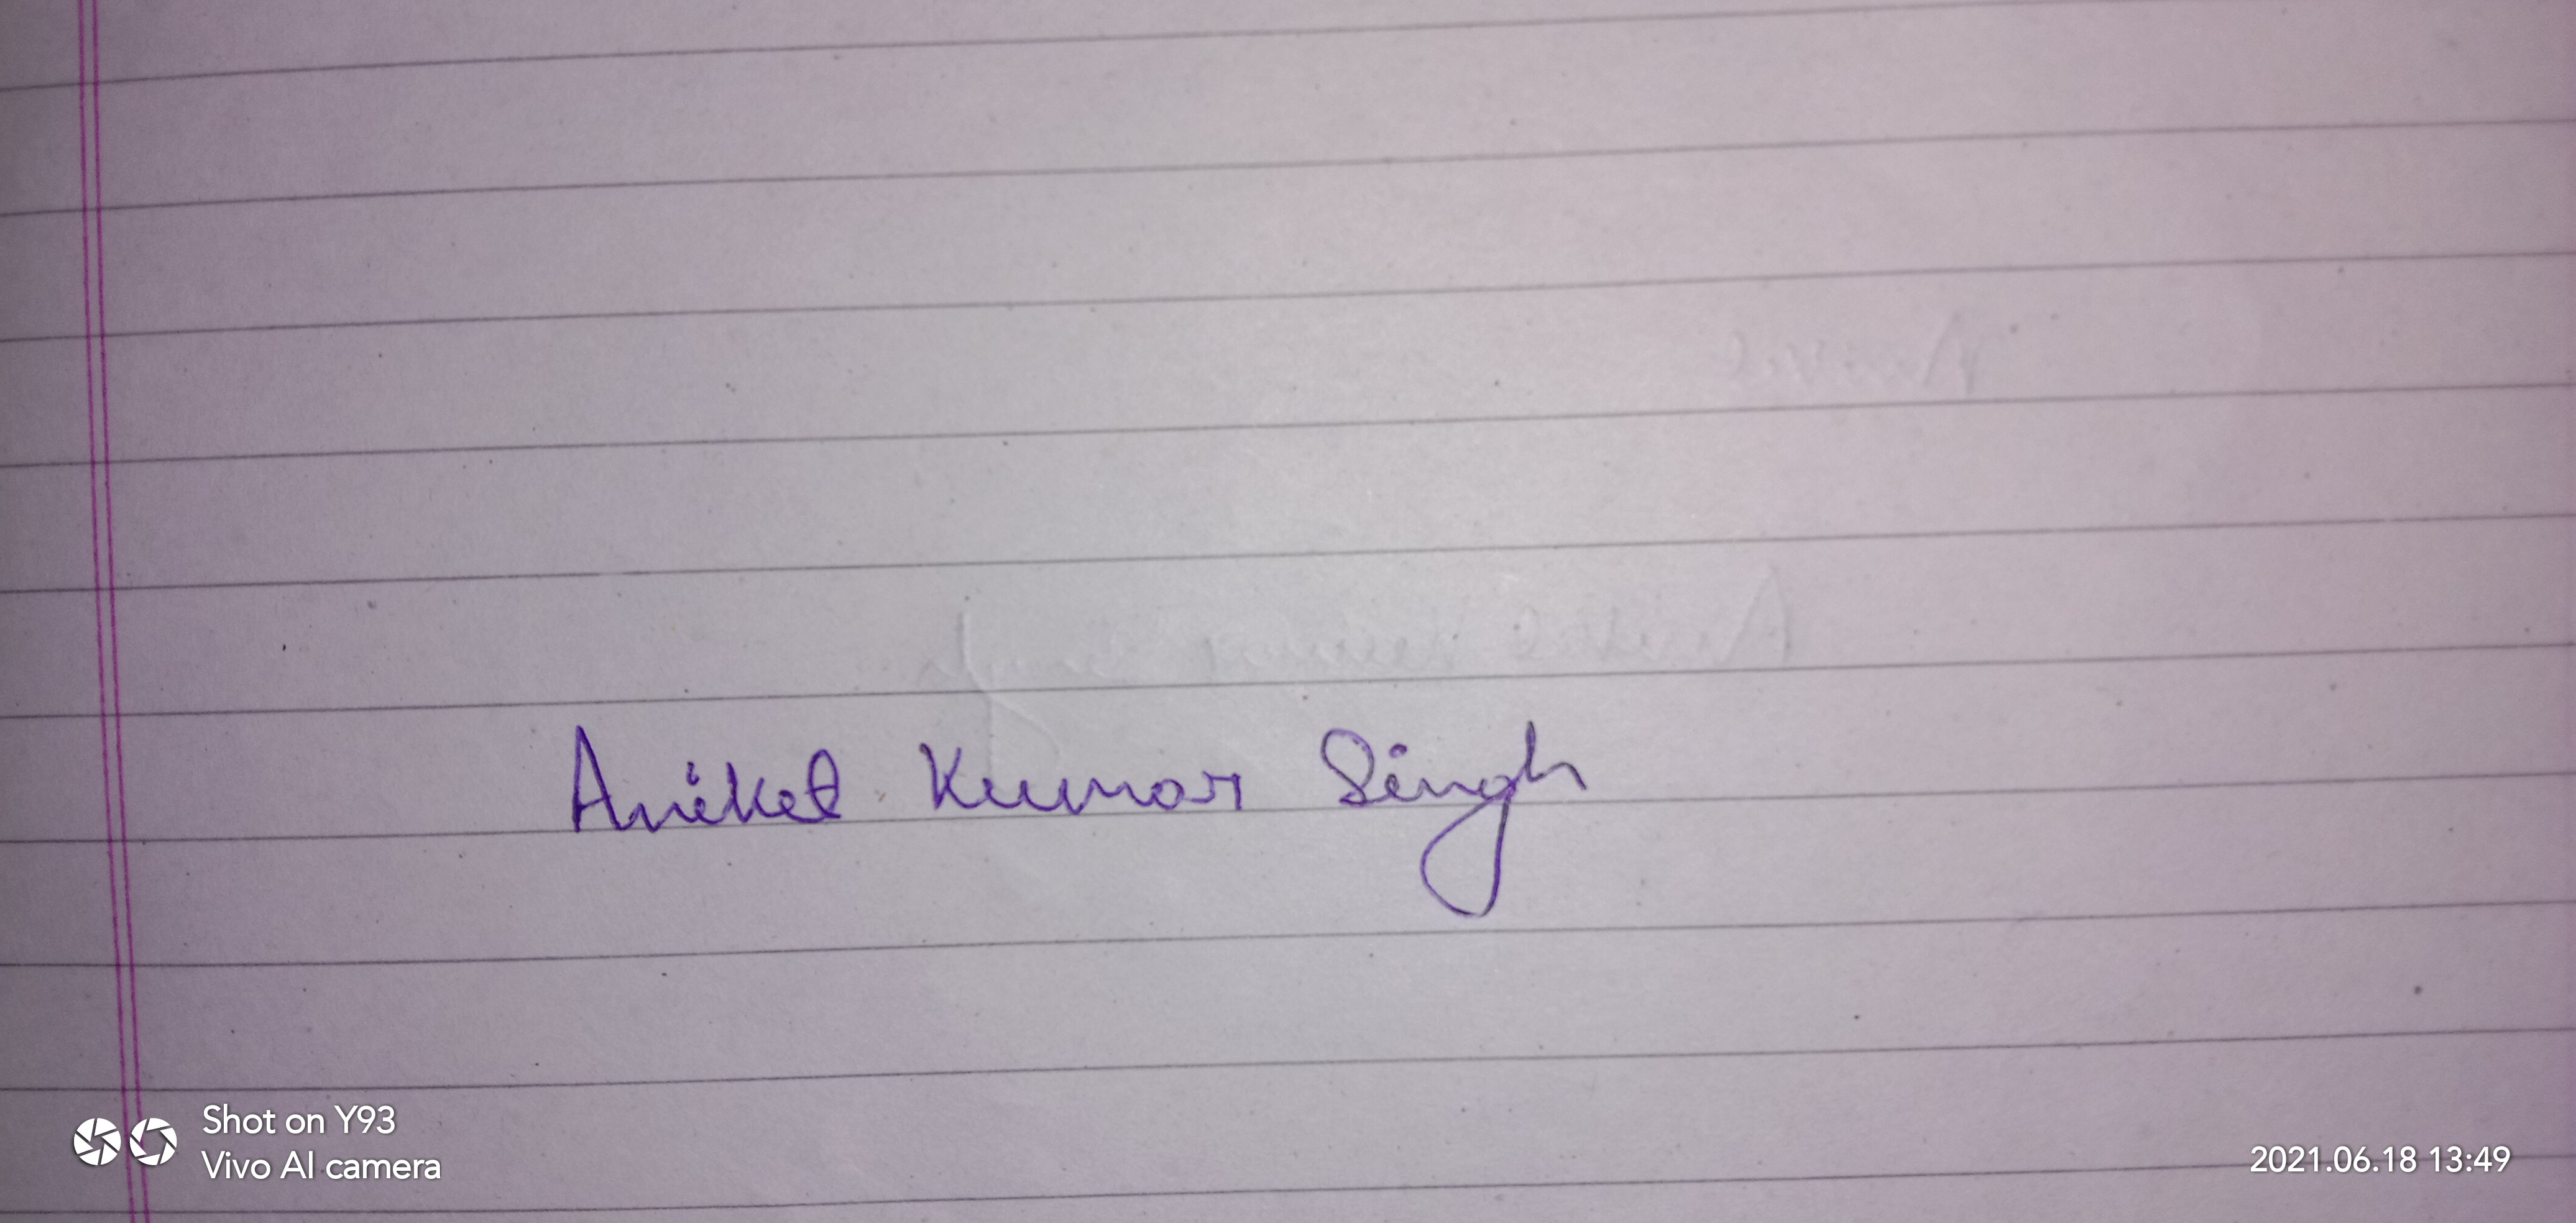 Aniket Kumar Singh
Shot on Y93
Vivo AI camera
2021.06.18 13:49